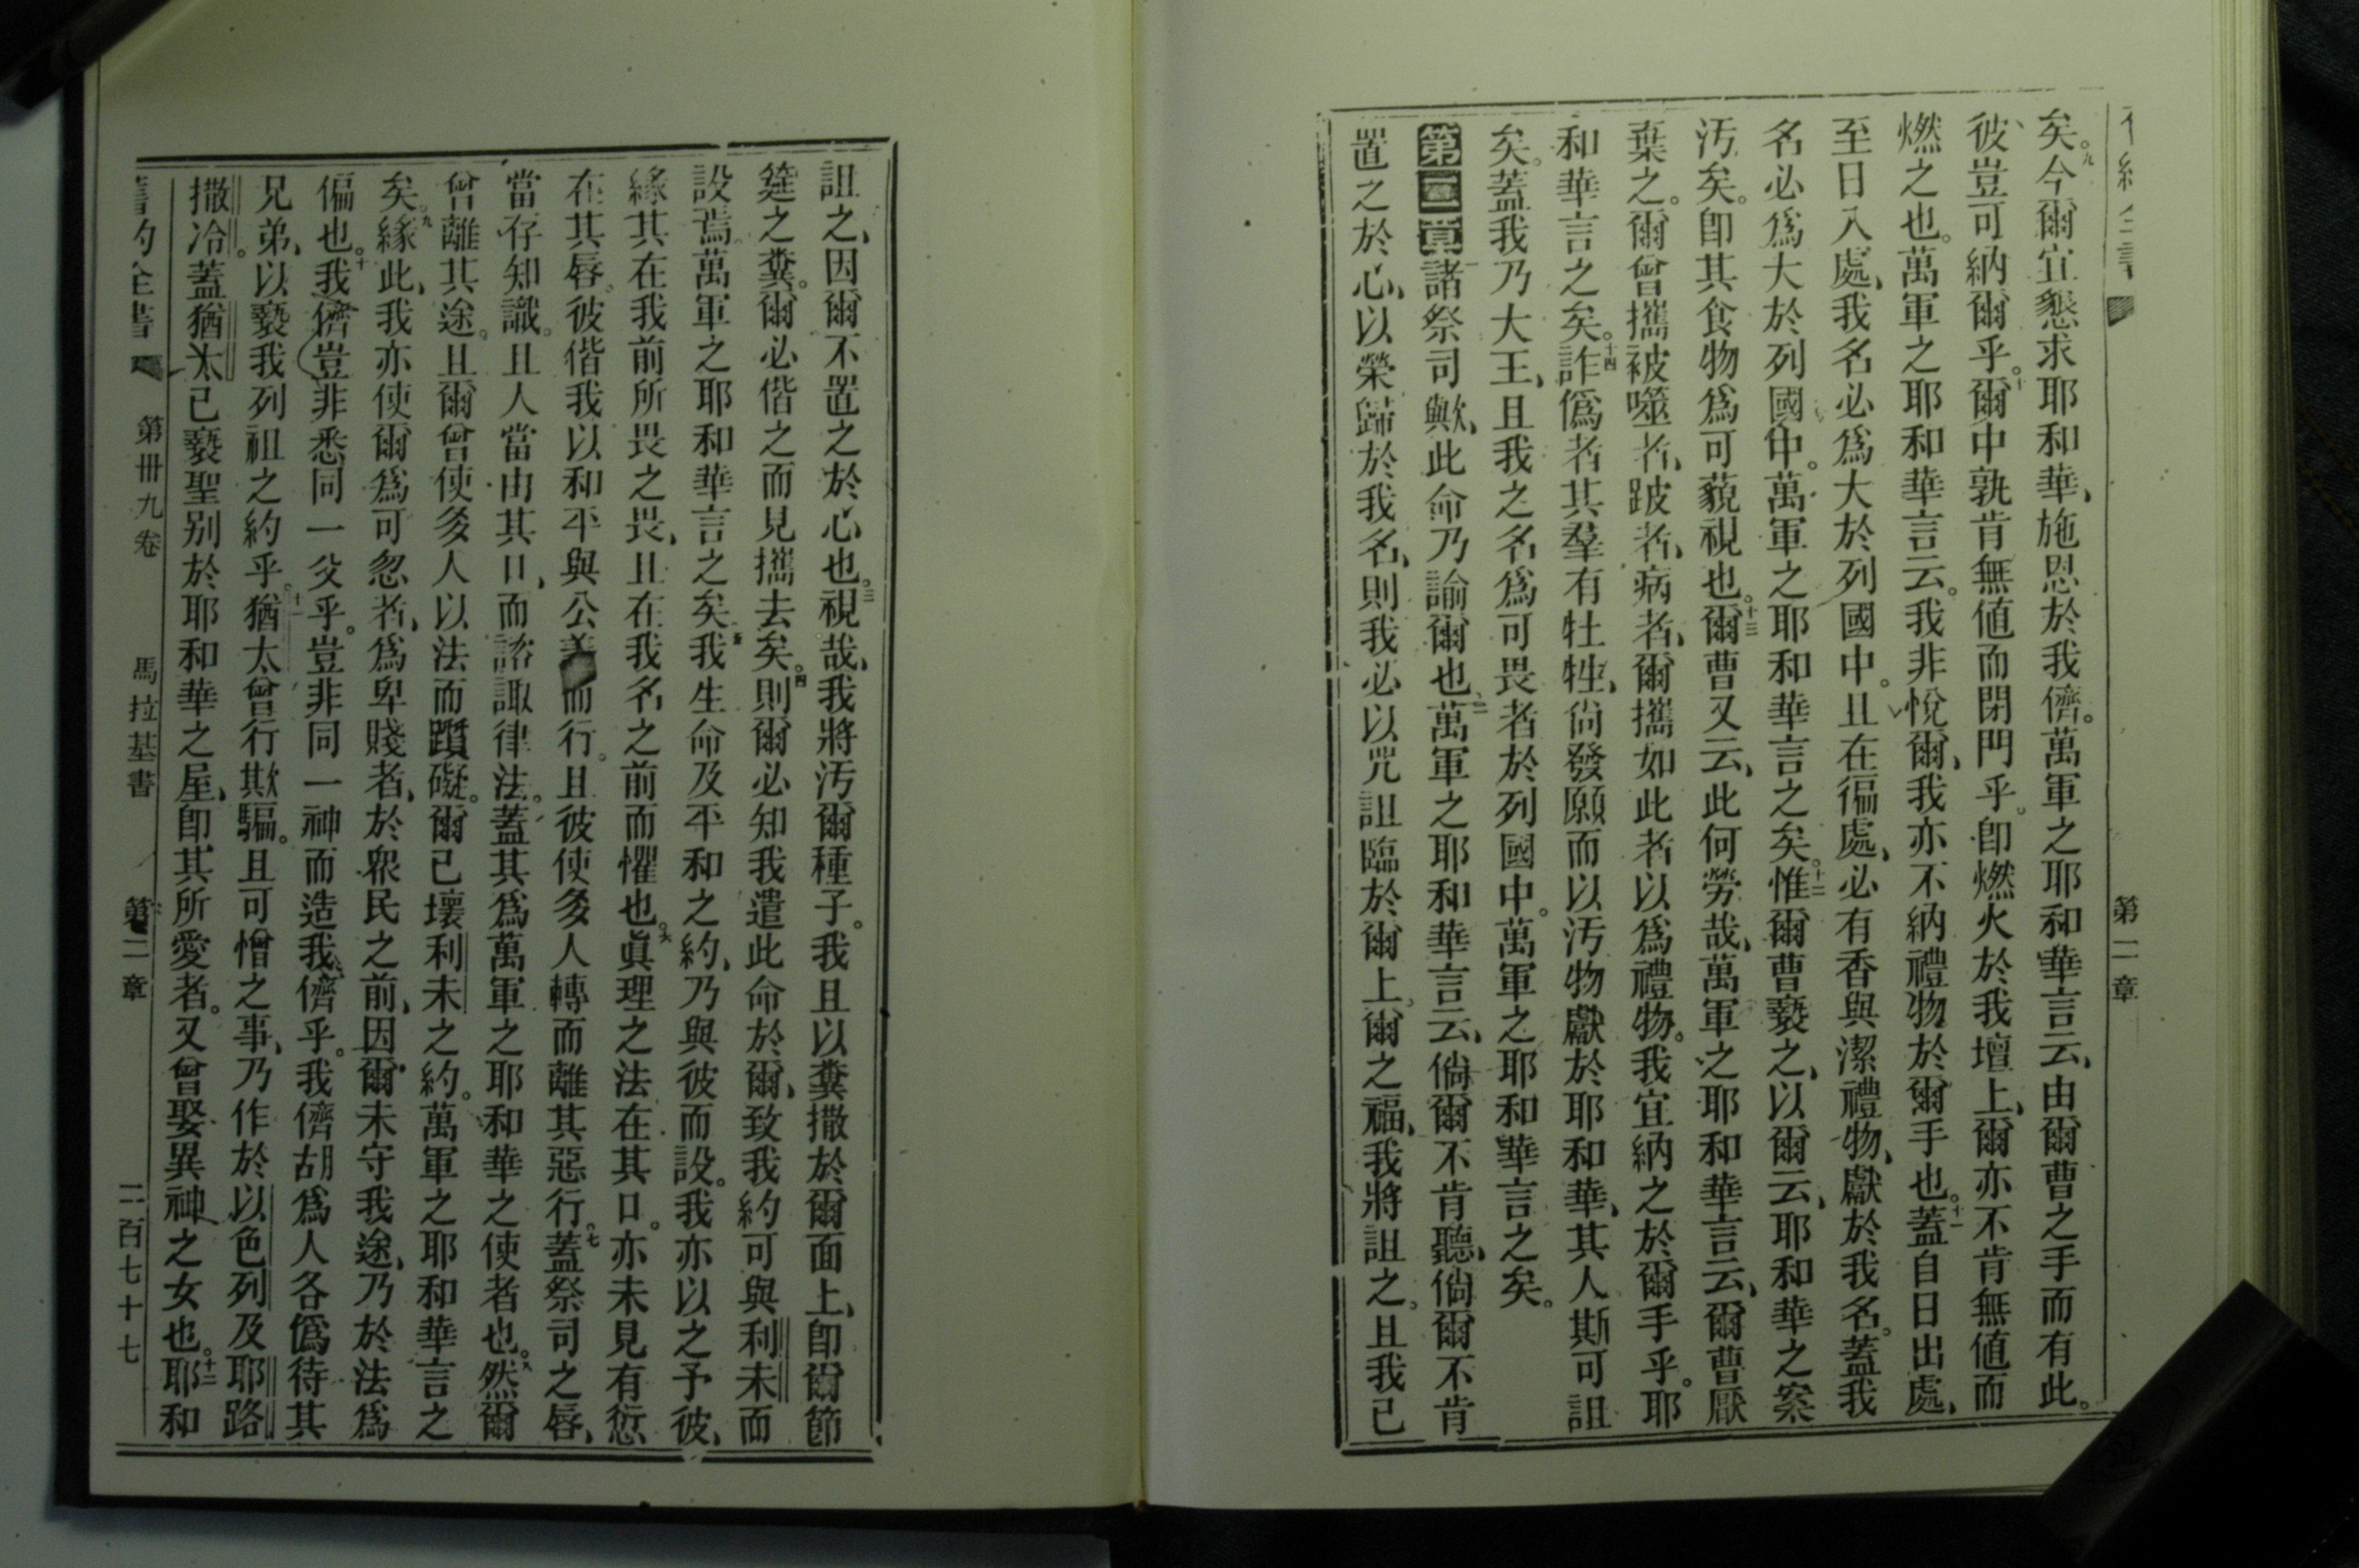 第二章
矣。九今爾宜懇求耶和華、施恩於我儕。萬軍之耶和華言云、由爾曹之手而有此。
彼、豈可納爾乎。十爾中孰肯無値而閉門乎。卽燃火於我壇上、爾亦不肯無値而
燃之也。萬軍之耶和華言云。我非悅爾、我亦不納禮物於爾手也。十一蓋自日出處、
至日入處、我名必爲大於列國中。且在徧處、必有香與潔禮物、獻於我名。蓋我
名必爲大於列國中。萬軍之耶和華言之矣。十二惟爾曹褻之、以爾云、耶和華之案
汚矣。卽其食物爲可藐視也。十三爾曹又云、此何勞哉、萬軍之耶和華言云、爾曹厭
棄之。爾曾攜被噬者、跛者、病者、爾攜如此者以爲禮物。我宜納之於爾手乎。耶
和華言之矣。十四詐僞者其羣有牡牲、尙發願而以汚物獻於耶和華、其人斯可詛
矣。蓋我乃大王、且我之名爲可畏者於列國中。萬軍之耶和華言之矣。
第二章一諸祭司歟、此命乃諭爾也、二萬軍之耶和華言云、倘爾不肯聽、倘爾不肯
置之於心、以榮歸於我名、則我必以咒詛臨於爾上。爾之福、我將詛之。且我已
詛之、因爾不置之於心也。三視哉、我將汚爾種子。我且以糞撒於爾面上、卽爾節
筵之糞。爾必偕之而見攜去矣。四則爾必知我遣此命於爾、致我約可與利未而
設焉。萬軍之耶和華言之矣。五我生命及平和之約、乃與彼而設。我亦以之予彼、
緣其在我前所畏之畏、且在我名之前而懼也。六眞理之法在其口。亦未見有愆
在其唇。彼偕我以和平與公義而行。且彼使多人轉而離其惡行。七蓋祭司之唇、
當存知識。且人當由其口、而諮諏律法。蓋其爲萬軍之耶和華之使者也。八然爾
曾離其途。且爾曾使多人以法而躓礙。爾已壞利未之約。萬軍之耶和華言之
矣。九緣此、我亦使爾爲可忽者、爲卑賤者、於衆民之前、因爾未守我途、乃於法爲
偏也。十我儕豈非悉同一父乎。豈非同一神而造我儕乎。我儕胡爲人各僞待其
兄弟、以褻我列祖之約乎。十一猶太曾行欺騙。且可憎之事、乃作於以色列及耶路
撒冷。蓋猶太已褻聖别於耶和華之屋、卽其所愛者。又曾娶異神之女也。十二耶和
舊約全書 第卅九卷 馬拉基書 第二章 二百七十七